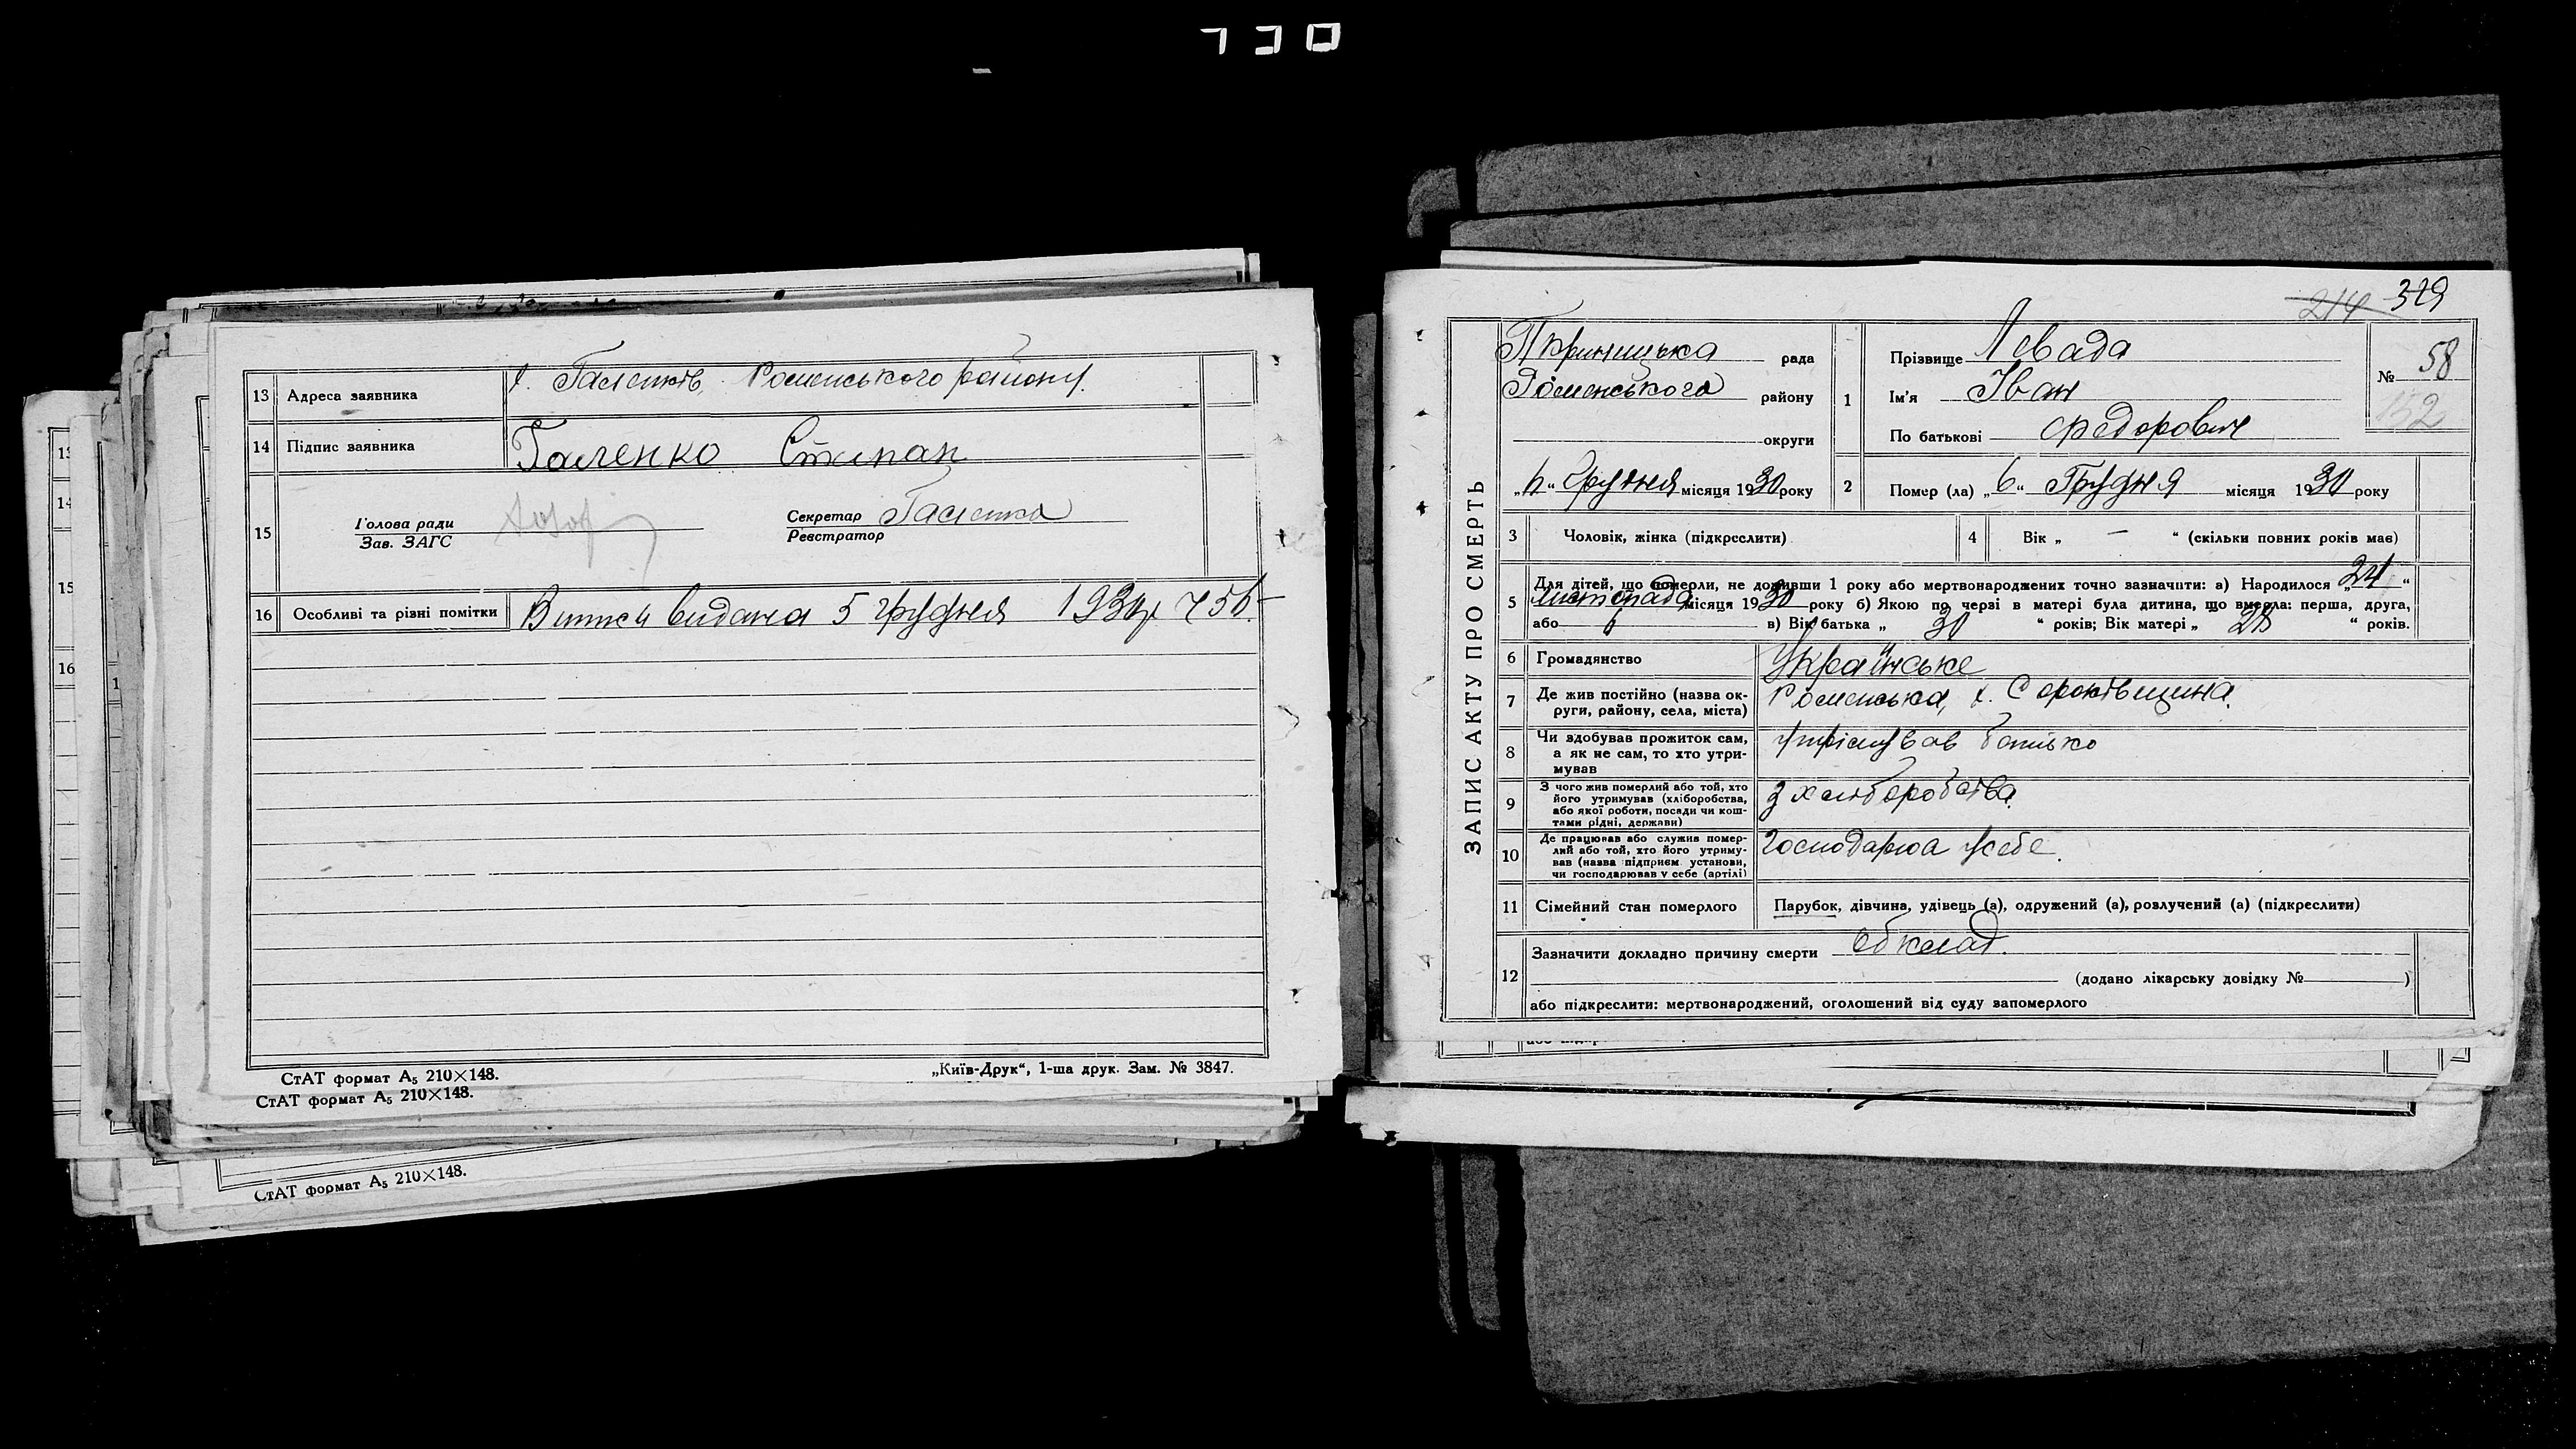 730
13 Адреса заявника х. Галенків, Роменського району.
14 Підпис заявника Галенко Степан
15 Голова ради
Зав. ЗАГС
Секретар Галенко
Реєстратор
16 Особливі та різні помітки Виписи видана 5 грудня 1930 р
СтАТ формат А5 210×148.
„Київ-Друк“, 1-ша друк. Зам. № 3847.
СтАТ формат А5 210×148.
СтАТ формат А5 210×148.
15
14
15
16
214 329
ЗАПИС АКТУ ПРО СМЕРТЬ
рада
Роменського району
округи
грудня місяця 1930 року
1 Прізвище Левада
Ім'я Іван
По батькові Федорович
№ 58
152
2 Помер (ла) „6“ Грудня місяця 1930 року
3 Чоловік, жінка (підкреслити)
4 Вік „ — “ (скільки повних років має)
5 Для дітей, що померли, не доживши 1 року або мертвонароджених точно зазначити: а) Народилося „24“
листопада місяця 1930 року б) Якою по черзі в матері була дитина, що вмерла: перша, друга,
або в) Вік батька „ 30 “ років; Вік матері „ 28 “ років.
6 Громадянство Українське
7 Де жив постійно (назва ок-
руги, району, села, міста) Роменська, х. Сороківщина.
8 Чи здобував прожиток сам,
а як не сам, то хто утри-
мував утрімував батько
9 З чого жив померлий або той, хто
його утримував (хліборобства,
або якої роботи, посади чи кош-
тами рідні, держави) з хліборобства.
10 Де працював або служив помер-
лий або той, хто його утриму-
вав (назва підприєм. установи,
чи господарював у себе (артілі) Господарюа у себе.
11 Сімейний стан померлого Парубок, дівчина, удівець (а), одружений (а), розлучений (а) (підкреслити)
12 Зазначити докладно причину смерти обклад.
(додано лікарську довідку № )
або підкреслити: мертвонароджений, оголошений від суду запомерлого